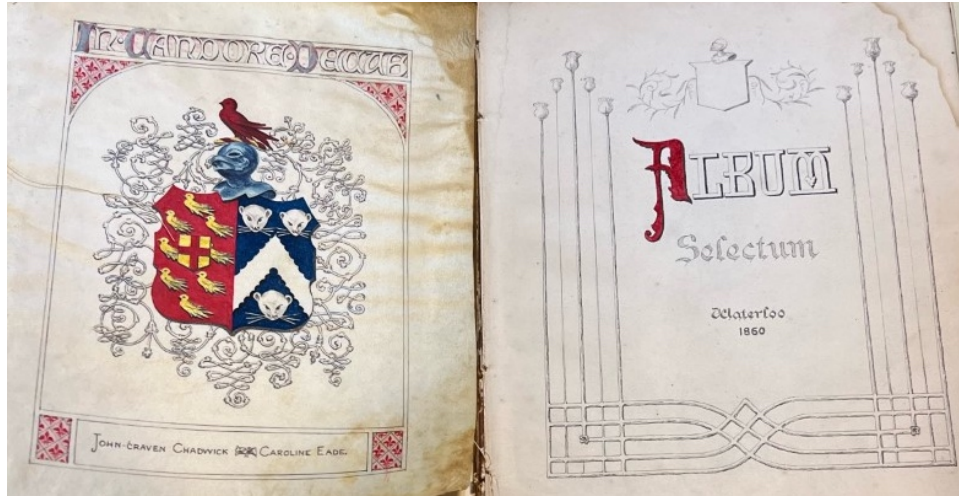 In·Candore·Decus
John·Craven Chadwick Caroline Eade.
Album
Selectum
Waterloo
1860